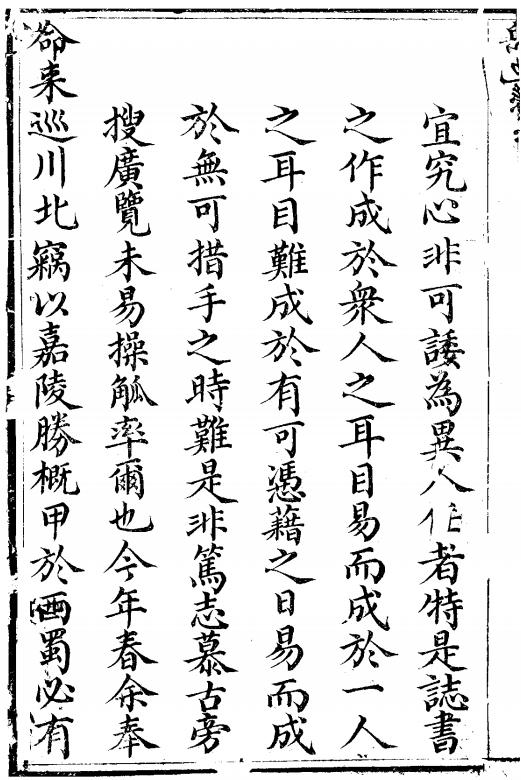 宜究心非可諉為異人任者特是誌書
之作成於衆人之耳目易而成於一人
之耳目難成於有可憑藉之日易而成
於無可措手之時難是非篤志慕古旁
搜廣覽未易操觚率爾也今年春余奉
命来巡川北竊以嘉陵勝概甲於西蜀必有